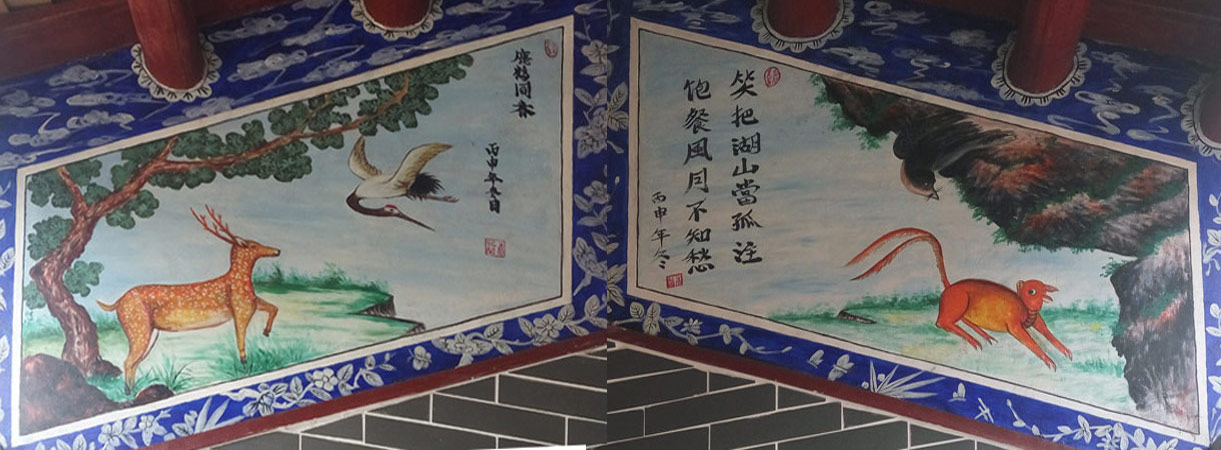 鹿鶴同春
丙申年冬日
笑把湖山當孤注
飽餐風月不知愁
丙申年冬